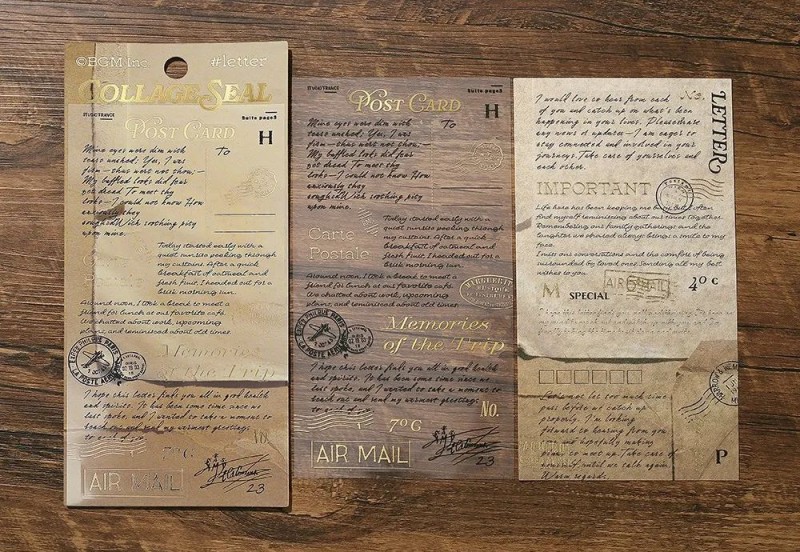 ©BGM Inc
#letter
COLLAGE SEAL
POST CARD
H
To
Mine eyes were dim with
tears unshed; Yes, I was
firm—thus wert not thou;—
My baffled looks did fear
yet dread To meet thy
looks—I could not know How
anxiously they
sought With soothing pity
upon mine.
Today started early with a
quiet sunrise peeking through
my curtains. After a quick
breakfast of oatmeal and
fresh fruit, I headed out for a
brisk morning run.
Around noon, I took a break to meet a
friend for lunch at our favorite café.
We chatted about work, upcoming
plans, and reminisced about old times.
Memories
of the Trip
I hope this letter finds you all in good health
and spirits. It has been some time since we
last spoke, and I wanted to take a moment to
reach out and send my warmest greetings
to each of you.
No.
7º G
AIR MAIL
23
POST CARD
Suite page 2
H
To
Mine eyes were dim with
tears unshed; Yes, I was
firm—thus wert not thou;—
My baffled looks did fear
yet dread To meet thy
looks—I could not know How
anxiously they
sought With soothing pity
upon mine.
Carte
Postale
Today started early with a
quiet sunrise peeking through
my curtains. After a quick
breakfast of oatmeal and
fresh fruit, I headed out for a
brisk morning run.
Around noon, I took a break to meet a
friend for lunch at our favorite café.
We chatted about work, upcoming
plans, and reminisced about old times.
Memories
of the Trip
I hope this letter finds you all in good health
and spirits. It has been some time since we
last spoke, and I wanted to take a moment to
reach out and send my warmest greetings
to each of you.
No.
7º G
AIR MAIL
23
No.
LETTER
I would love to hear from each
of you and catch up on what's been
happening in your lives. Please share
any news or updates—I am eager to
stay connected and involved in your
journeys. Take care of yourselves and
each other.
IMPORTANT
Life here has been keeping me busy, but I often
find myself reminiscing about our times together.
Remembering our family gatherings and the
laughter we shared always brings a smile to my
face.
I miss our conversations and the comfort of being
surrounded by loved ones. Sending all my best
wishes to you
M
SPECIAL
AIR MAIL
4º c
pass before we catch up
properly. I'm looking
forward to hearing from you
and hopefully making
plans to meet up. Take care of
yourself until we talk again.
Warm regards,
P